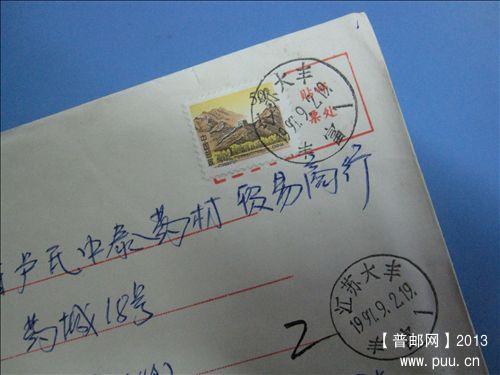 江苏大丰
19 9.2.19.
丰富
贴邮
票处
卢氏中泰药材贸易商行
药城18号
2
江苏大丰
19 9.2.19.
丰富
【普邮网】2013
www.puu.cn